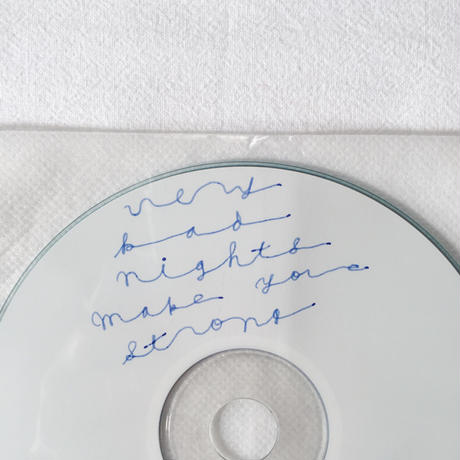 very
bad
nights
make you
strong